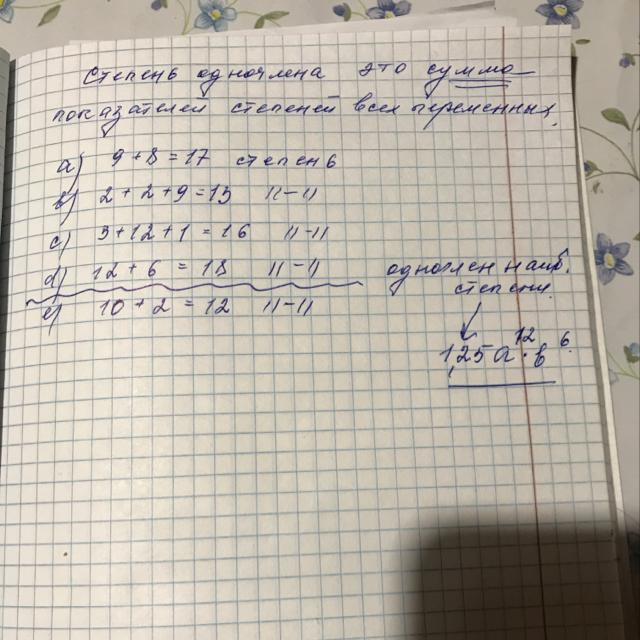 Степень одночлена это сумма
показателей степеней всех переменных.
a) 9 + 8 = 17 степень
b) 2 + 2 + 9 = 13 11-11
c) 3 + 12 + 1 = 16 11-11
d) 12 + 6 = 18 11-11
e) 10 + 2 = 12 11-11
одночлен наиб.
степени.
1,25 a¹² · b⁶.